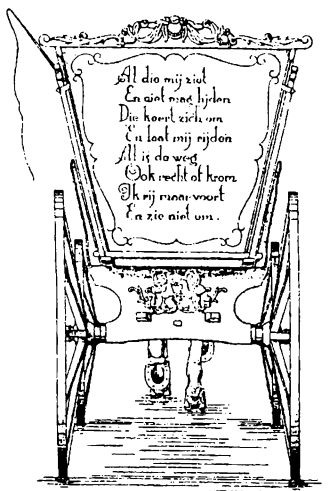 Al die mij ziet
En niet mag lijden
Die keert zich om
En laat mij rijden
Al is de weg
Ook recht of krom
Ik rij maar voort
En zie niet om.